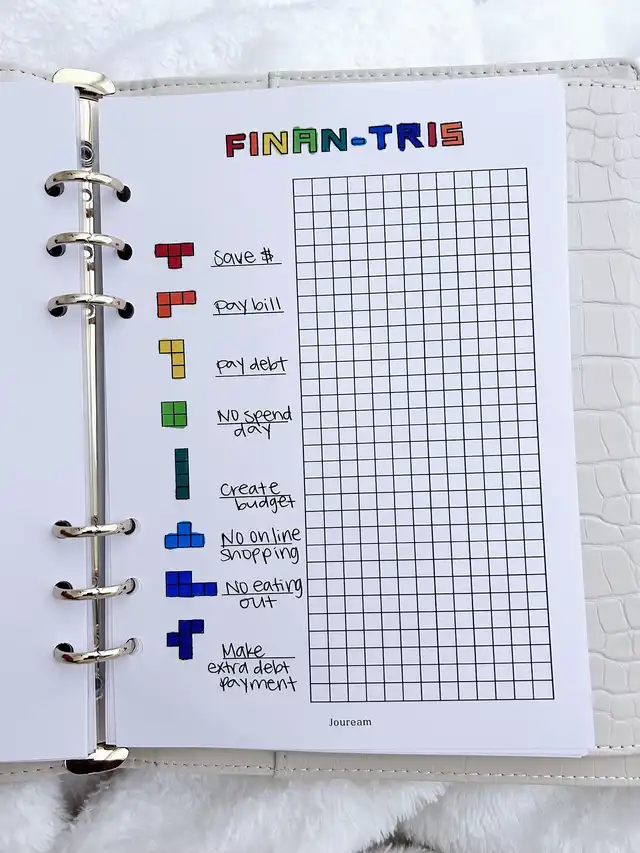 FINAN-TRIS
save $
pay bill
pay debt
NO spend
day
Create
budget
No online
shopping
No eating
out
Make
extra debt
payment
Jouream